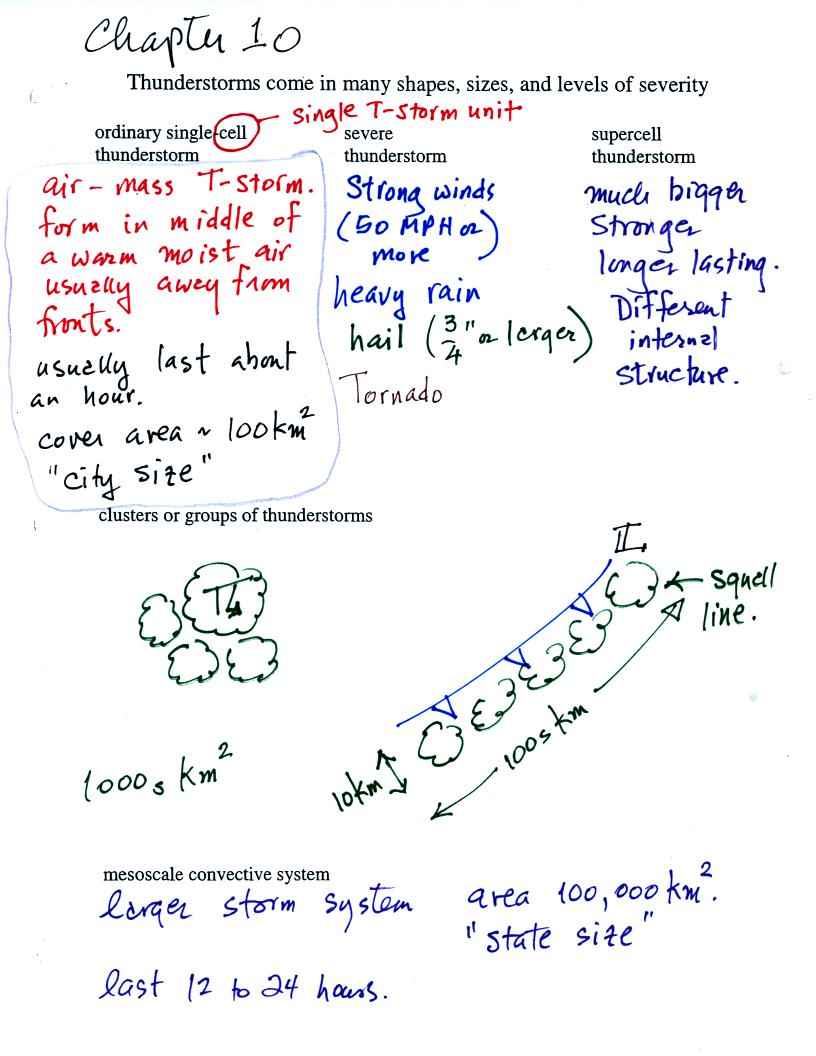 Chapter 10
Thunderstorms come in many shapes, sizes, and levels of severity
single T-storm unit
ordinary single-cell
thunderstorm
air-mass T-storm.
form in middle of
a warm moist air
usually away from
fronts.
usually last about
an hour.
cover area ~ 100 km²
"city size"
severe
thunderstorm
Strong winds
(50 MPH or
more)
heavy rain
hail (3/4" or larger)
Tornado
supercell
thunderstorm
much bigger
Stronger
longer lasting.
Different
internal
structure.
clusters or groups of thunderstorms
1000s km²
squall
line.
100s km
10 km
mesoscale convective system
larger storm system
area 100,000 km².
"state size"
last 12 to 24 hours.